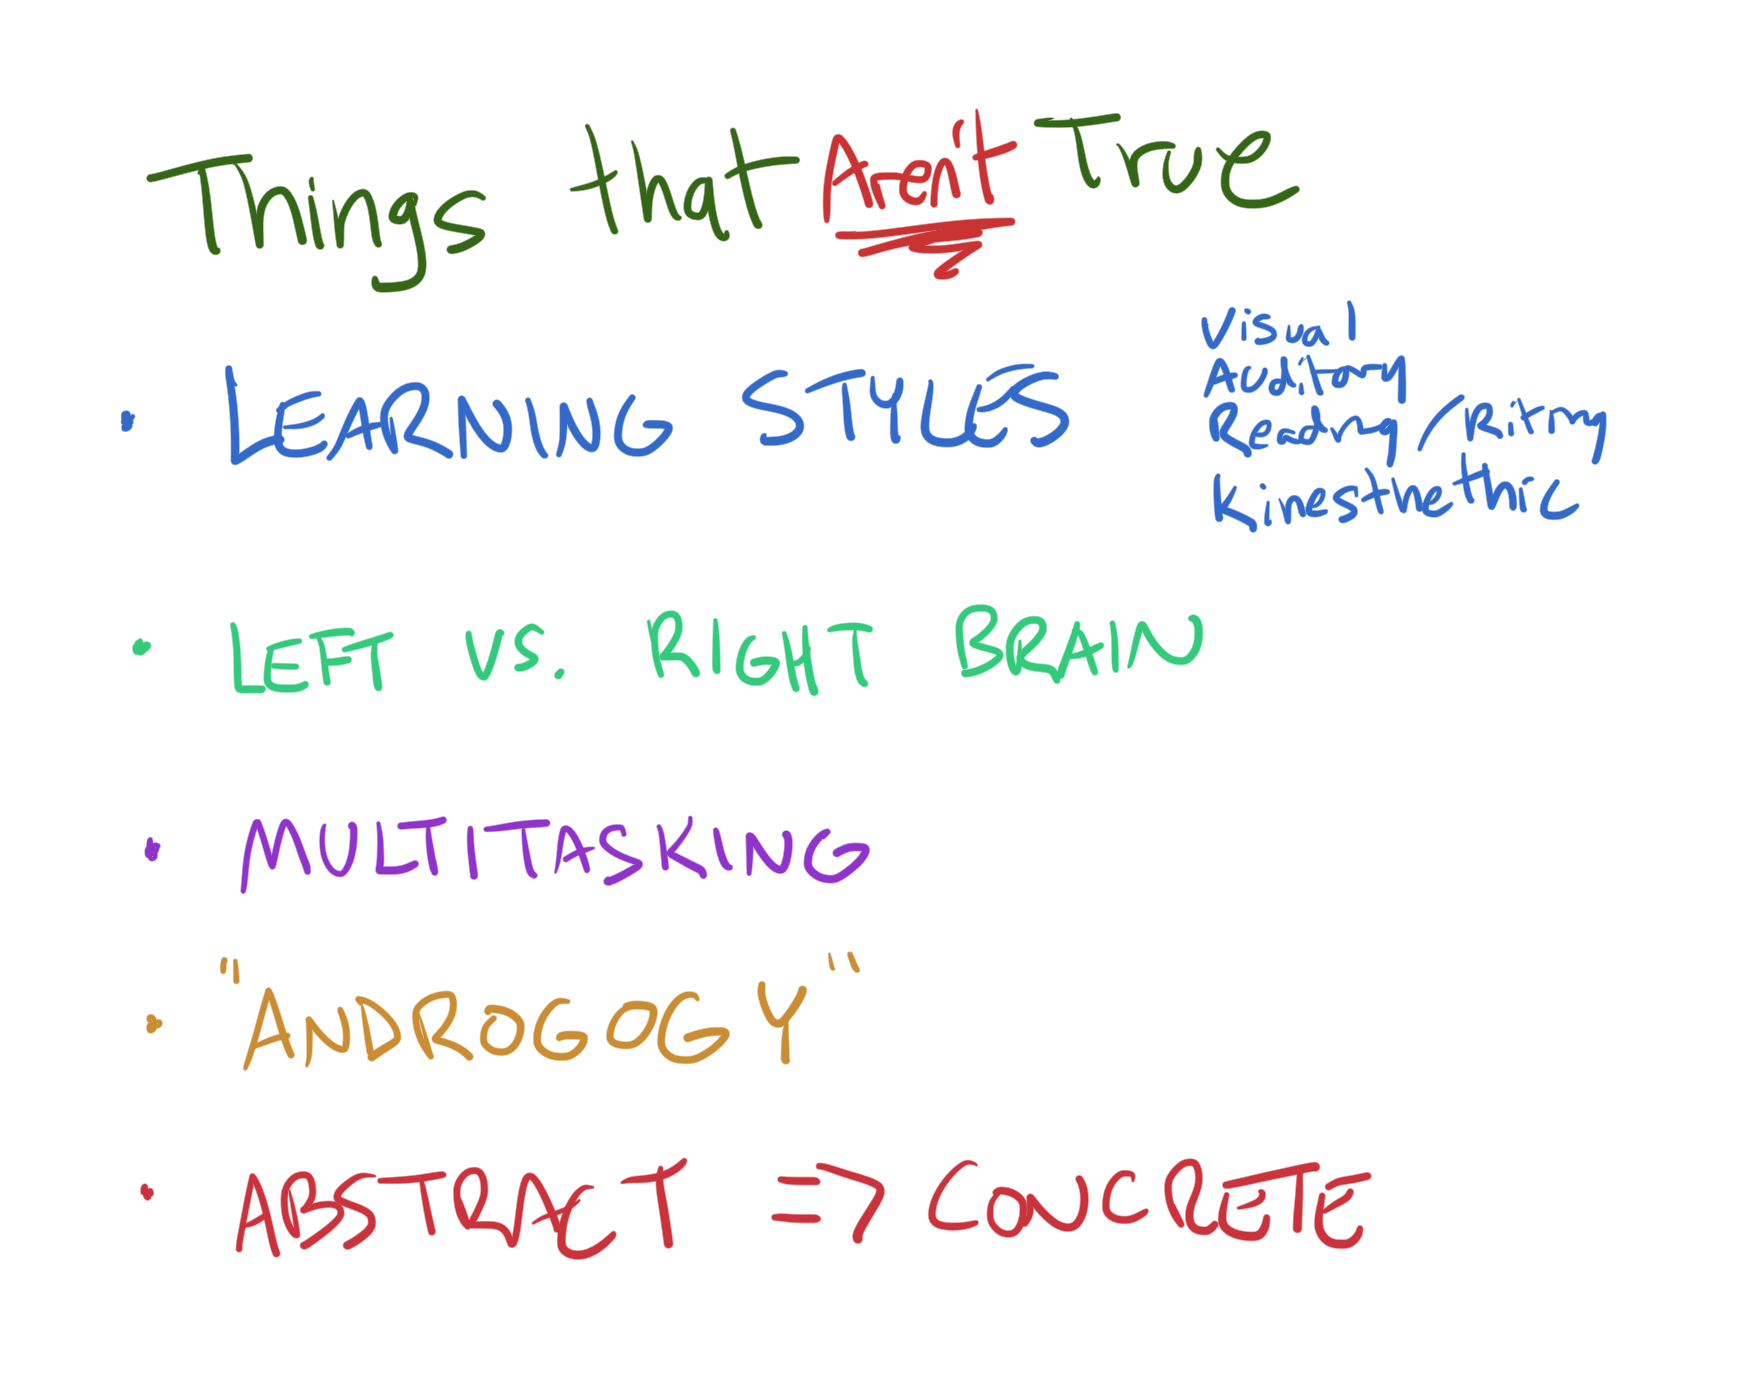 Things that Aren't True
• LEARNING STYLES
Visual
Auditory
Reading/Riting
Kinesthethic
• LEFT VS. RIGHT BRAIN
• MULTITASKING
• "ANDROGOGY"
• ABSTRACT => CONCRETE